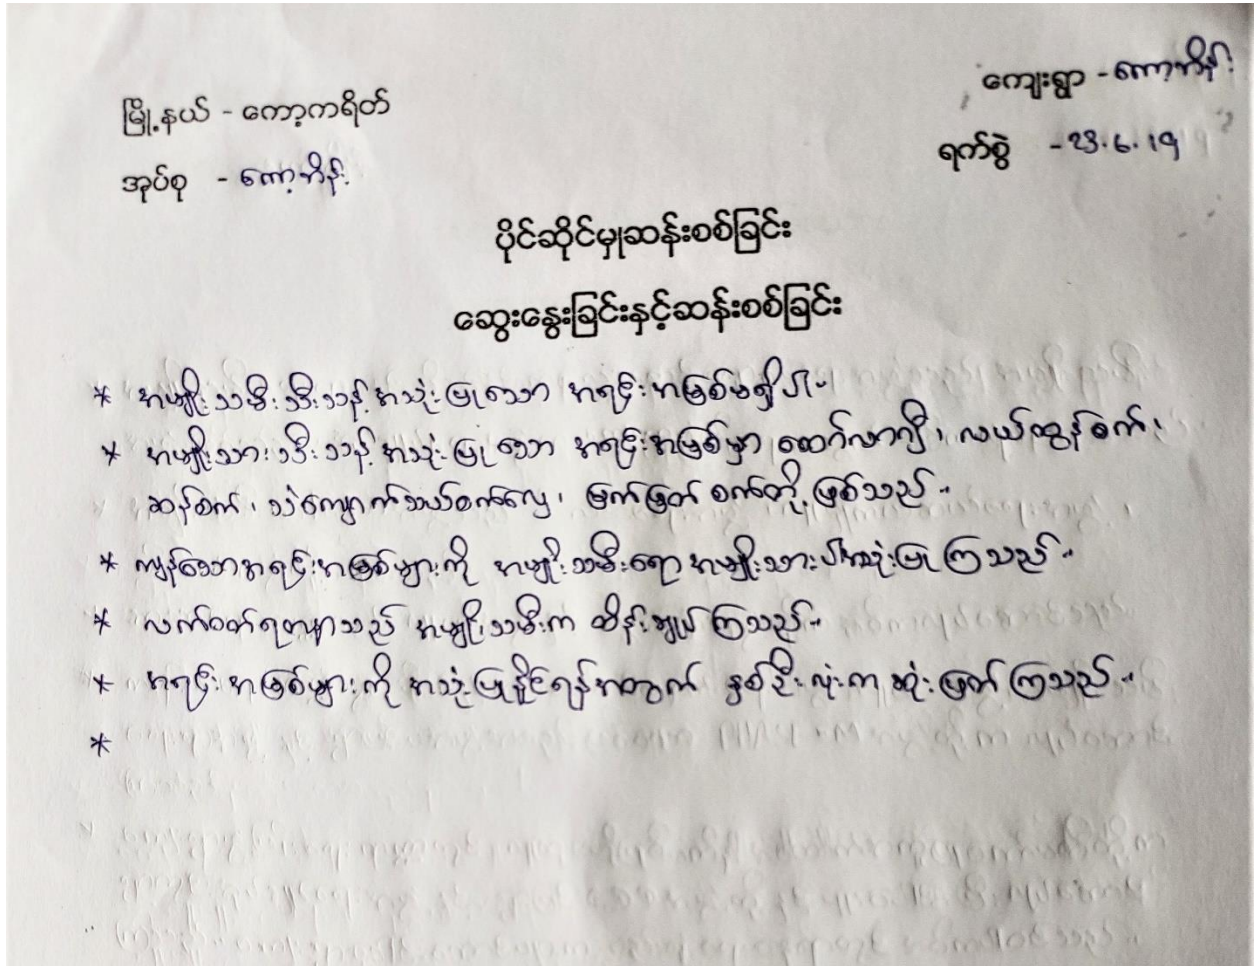 မြို့နယ် - ကော့ကရိတ်
ကျေးရွာ - ကော့ဘိန်း
အုပ်စု - ကော့ဘိန်း
ရက်စွဲ - ၁၃.၆.၁၅
ပိုင်ဆိုင်မှုဆန်းစစ်ခြင်း
ဆွေးနွေးခြင်းနှင့်ဆန်းစစ်ခြင်း
* အမျိုးသမီးသီးသန့်အသုံးပြုသော အရင်းအမြစ်မရှိပါ။
* အမျိုးသားသီးသန့်အသုံးပြုသော အရင်းအမြစ်မှာ ထော်လာဂျီ၊ လယ်ထွန်စက်၊
ဆန်စက်၊ သဲကျောက်သယ်စက်လှေ၊ မြက်ဖြတ်စက်တို့ဖြစ်သည်။
* ကျန်သောအရင်းအမြစ်များကို အမျိုးသမီးရောအမျိုးသားပါအသုံးပြုကြသည်။
* လက်ဝတ်ရတနာသည် အမျိုးသမီးက ထိန်းချုပ်ကြသည်။
* အရင်းအမြစ်များကို အသုံးပြုနိုင်ရန်အတွက် နှစ်ဦးလုံးက ဆုံးဖြတ်ကြသည်။
*